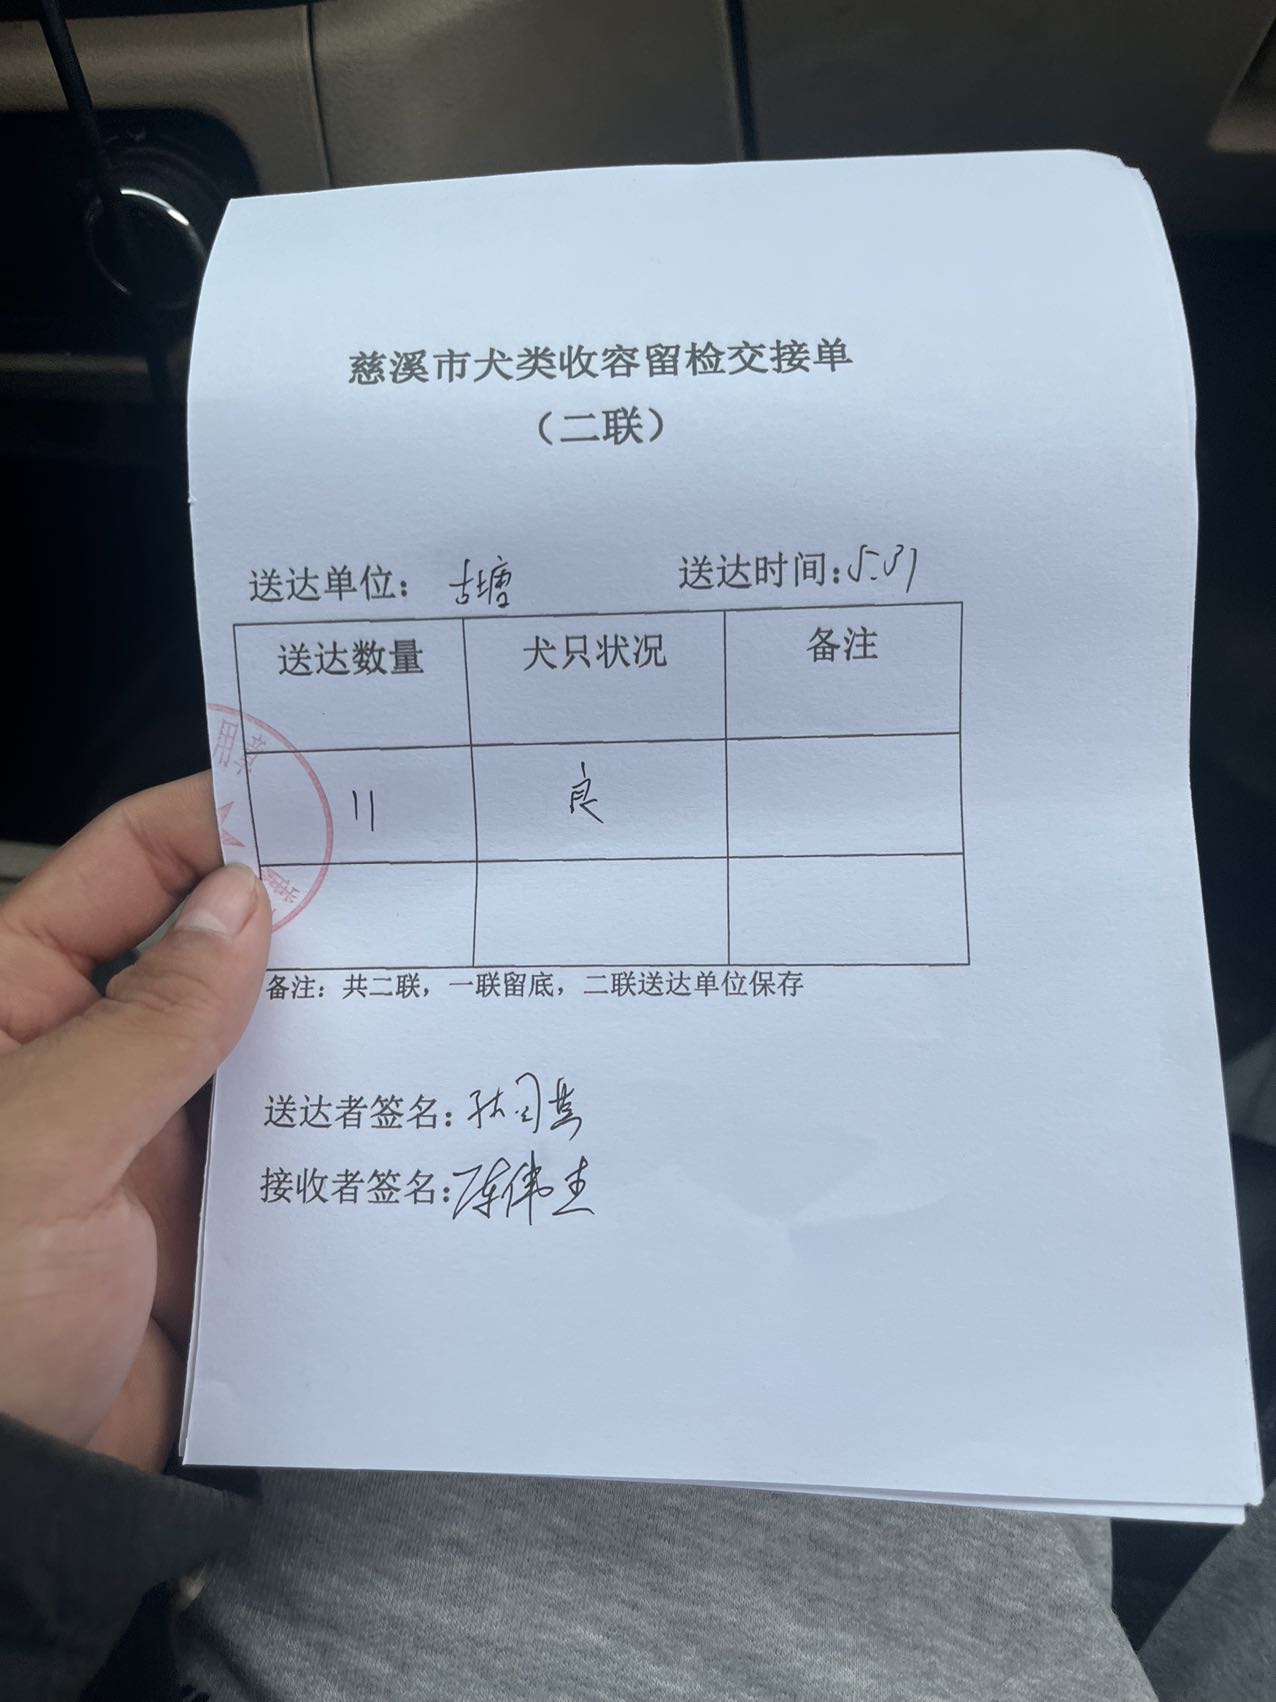 慈溪市犬类收容留检交接单
（二联）
送达单位： 古塘 送达时间：5.31
送达数量 犬只状况 备注
11 良
备注：共二联，一联留底，二联送达单位保存
送达者签名：
接收者签名：陈伟